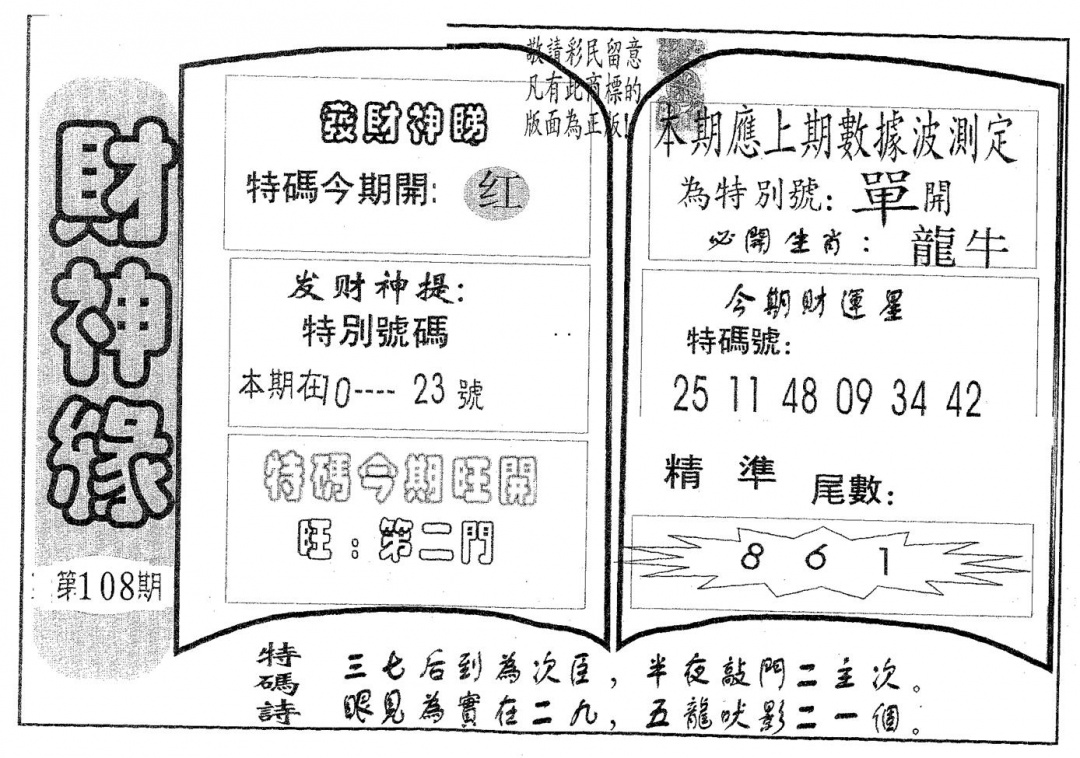 財神緣
第108期
敬請彩民留意
凡有此商標的
版面為正版!
發財神睇
特碼今期開: 红
发财神提:
特別號碼
本期在10----23號
特碼今期旺開
旺:第二門
本期應上期數據波測定
為特別號:單開
必開生肖: 龍牛
今期財運星
特碼號:
25 11 48 09 34 42
精準 尾數:
8 6 1
特碼詩
三七后到為次臣,半夜敲門二主次。
眼見為實在二九,五龍吠影二一個。